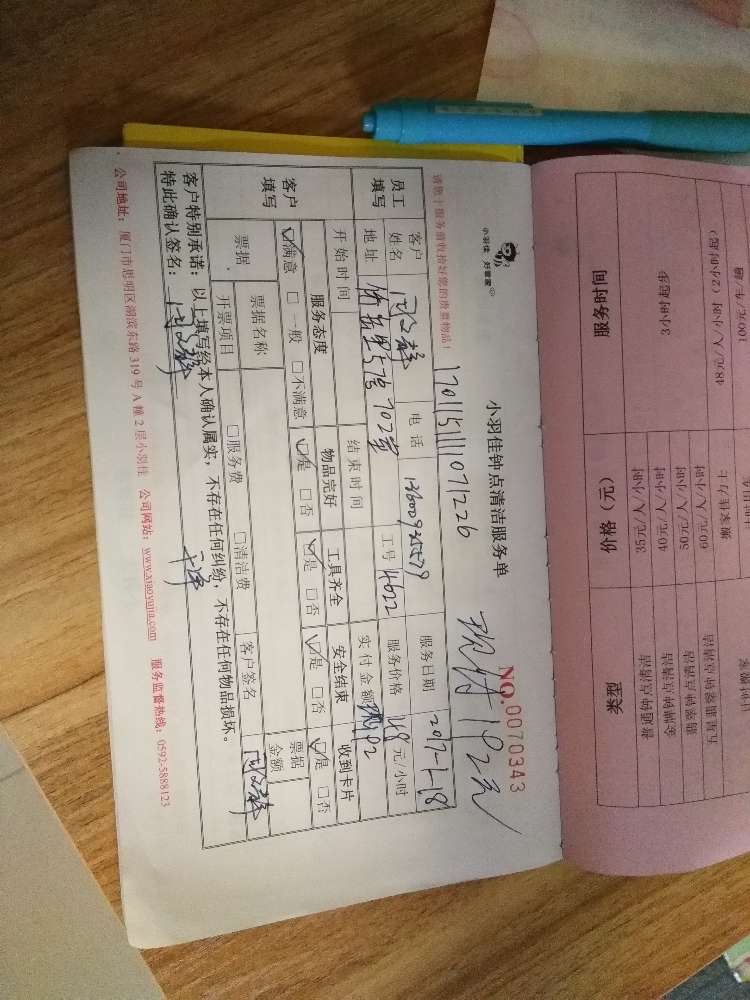 小羽佳 好管家
小羽佳钟点清洁服务单
NO.0070343
请您于服务前收拾好您的贵重物品!
170115111071226
现付192元
员工填写
客户姓名
电话
服务日期 2017-1-18
地址 57号702室
工号 4622
服务价格 48元/小时
开始时间
结束时间
实付金额 现192
客户填写
服务态度
物品完好
工具齐全
安全结束
收到卡片
☑满意 □一般 □不满意
☑是 □否
☑是 □否
☑是 □否
☑是 □否
票据
票据名称
票据金额
开票项目
□服务费 □清洁费
客户签名
客户特别承诺:以上填写经本人确认属实,不存在任何纠纷,不存在任何物品损坏。
特此确认签名:
干净
公司地址:厦门市思明区湖滨东路319号A幢2层小羽佳 公司网站:www.xiaoyujia.com 服务监督热线:0592-5888123
类型
价格(元)
服务时间
普通钟点清洁
35元/人/小时
3小时起步
金牌钟点清洁
40元/人/小时
翡翠钟点清洁
50元/人/小时
五星翡翠钟点清洁
60元/人/小时
搬家佳力士
48元/人/小时(2小时起)
100元/车/趟